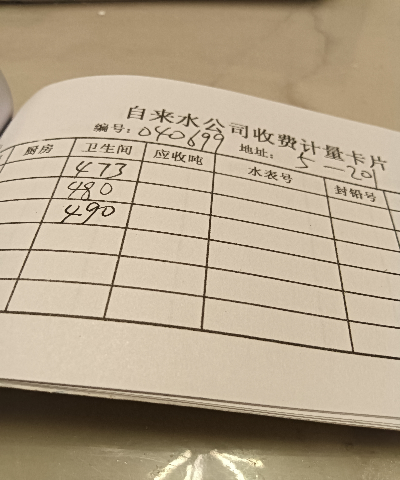 自来水公司收费计量卡片
编号: 040699 地址: 5-201
厨房 卫生间 应收吨 水表号 封铅号
473
480
490